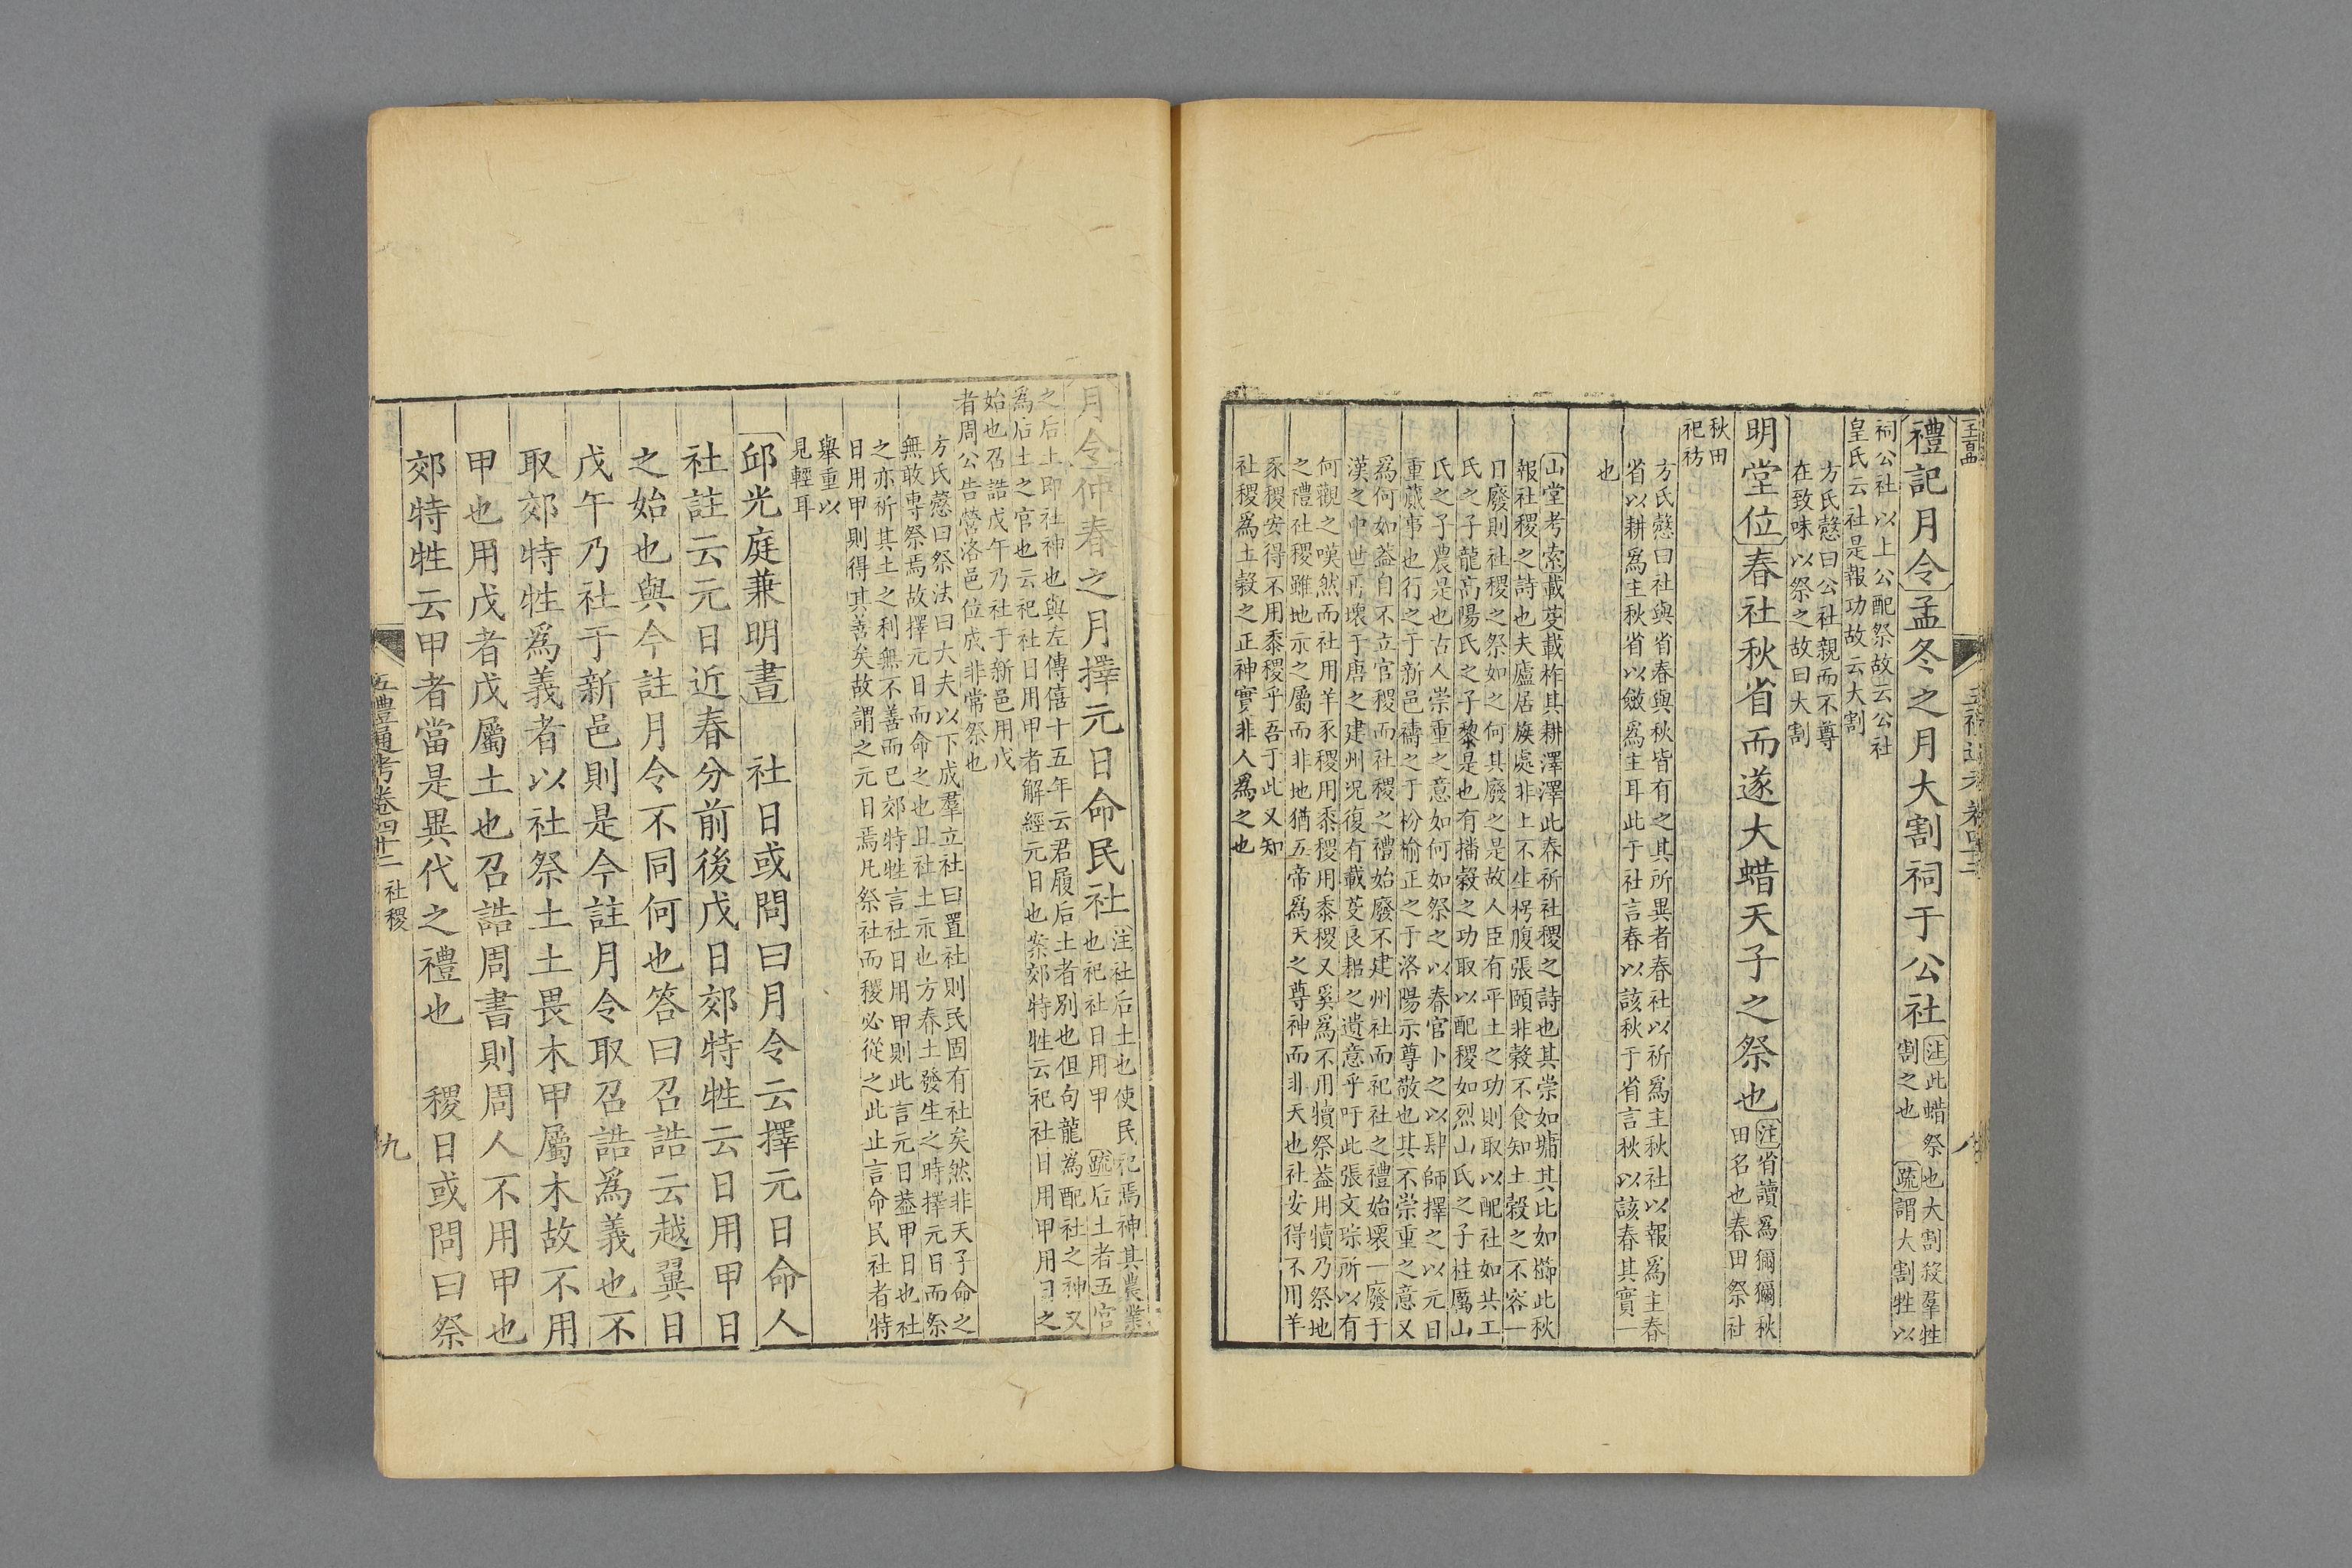 禮記月令孟冬之月大割祠于公社
注此蜡祭也大割殺羣牲
割之也 疏謂大割牲以
祠公社以上公配祭故云公社
皇氏云社是報功故云大割
方氏慤曰公社親而不尊
在致味以祭之故曰大割
明堂位春社秋省而遂大蜡天子之祭也
注省讀爲獮獮秋
田名也春田祭社
秋田
祀祊
方氏慤曰社與省春與秋皆有之其所異者春社以祈爲主秋社以報爲主春
省以耕爲主秋省以斂爲主耳此于社言春以該秋于省言秋以該春其實一
也
山堂考索載芟載柞其耕澤澤此春祈社稷之詩也其崇如墉其比如櫛此秋
報社稷之詩也夫廬居族處非上不生枵腹張頤非穀不食知土穀之不容一
日廢則社稷之祭如之何其廢之是故人臣有平土之功則取以配社如共工
氏之子龍高陽氏之子黎是也有播穀之功取以配稷如烈山氏之子柱厲山
氏之子農是也古人崇重之意如何如祭之以春官卜之以肆師擇之以元日
重蕆事也行之于新邑禱之于枌榆正之于洛陽示尊敬也其不崇重之意又
爲何如蓋自不立官稷而社稷之禮始廢不建州社而祀社之禮始壞一廢于
漢之中世再壞于唐之建州况復有載芟良耜之遺意乎吁此張文琮所以有
何觀之嘆然而社用羊豕稷用黍稷用黍稷又奚爲不用犢祭蓋用犢乃祭地
之禮社稷雖地示之屬而非地猶五帝爲天之尊神而非天也社安得不用羊
豕稷安得不用黍稷乎吾于此又知
社稷爲土穀之正神實非人爲之也
月令仲春之月擇元日命民社
注社后土也使民祀焉神其農業
也祀社日用甲 疏后土者五官
之后土即社神也與左傳僖十五年云君履后土者別也但句龍爲配社之神又
爲后土之官也云祀社日用甲者解經元日也案郊特牲云祀社日用甲用日之
始也召誥戊午乃社于新邑用戊
者周公告營洛邑位成非常祭也
方氏慤曰祭法曰大夫以下成羣立社曰置社則民固有社矣然非天子命之
無敢專祭焉故擇元日而命之也且社土示也方春土發生之時擇元日而祭
之亦祈其土之利無不善而已郊特牲言社日用甲則此言元日蓋甲日也社
日用甲則得其善矣故謂之元日焉凡祭社而稷必從之此止言命民社者特
舉重以
見輕耳
邱光庭兼明書 社日或問曰月令云擇元日命人
社註云元日近春分前後戊日郊特牲云日用甲日
之始也與今註月令不同何也答曰召誥云越翼日
戊午乃社于新邑則是今註月令取召誥爲義也不
取郊特牲爲義者以社祭土土畏木甲屬木故不用
甲也用戊者戊屬土也召誥周書則周人不用甲也
郊特牲云甲者當是異代之禮也 稷日或問曰祭
五禮通考卷四十二 社稷
九